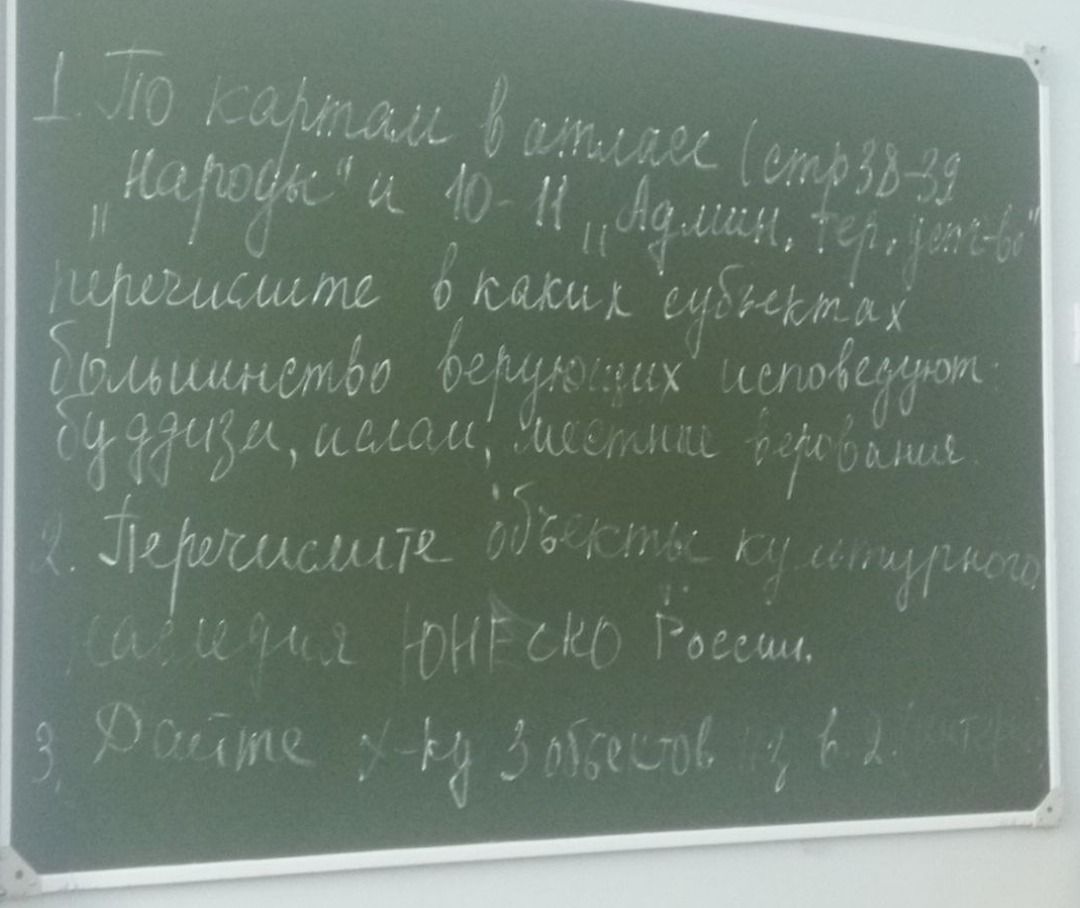 1. По картам в атласе (стр 38-39
„Народы" и 10-11 „Админ. тер. устч-во"
перечислите в каких субъектах
большинство верующих исповедуют:
буддизм, ислам, местные верования.
2. Перечислите объекты культурного
наследия ЮНЕСКО России.
3. Дайте х-ку 3 объектов из в. 2.